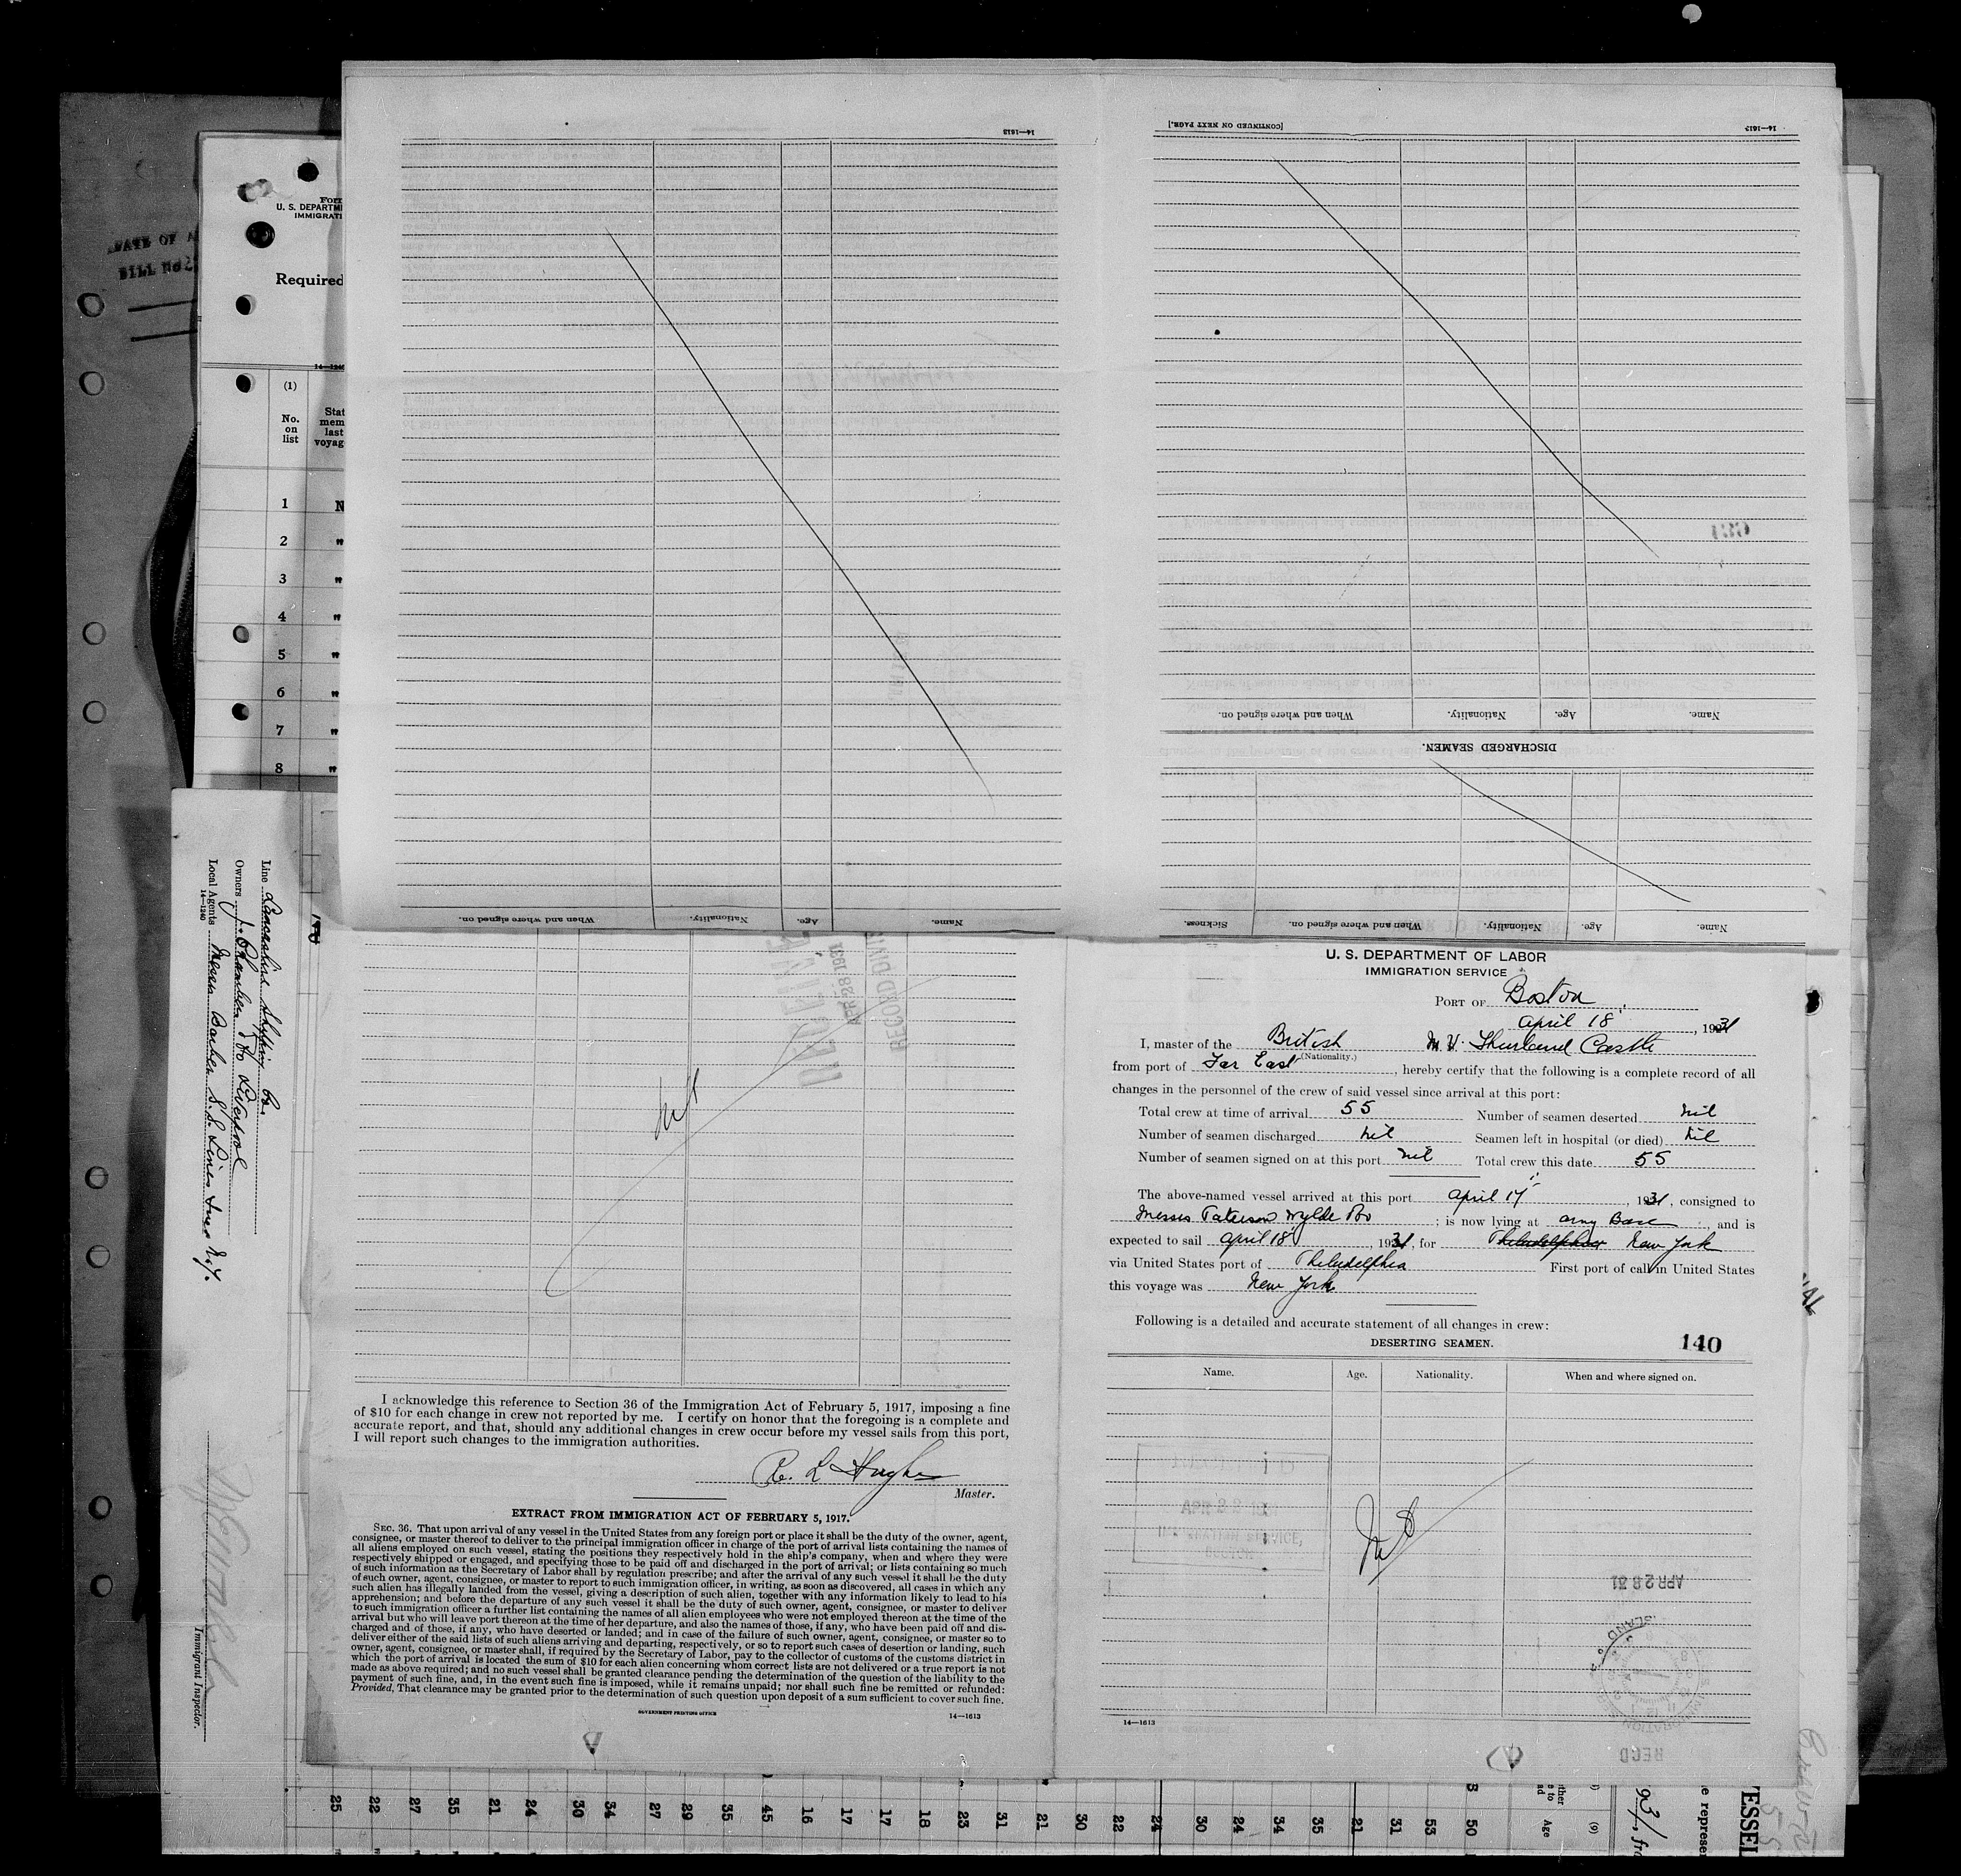 [CONTINUED ON NEXT PAGE.]
14—1613
14—1613
DATE OF
BILL
U. S. DEPARTM
IMMIGRATI
Required
(1)
No.
on
list
Stat
mem
last
voyag
1 N
2 "
3 "
4 "
5 "
6 "
7 "
8 "
Name. Age. Nationality. When and where signed on.
DISCHARGED SEAMEN.
Name. Age. Nationality. When and where signed on. Sickness.
Name. Age. Nationality. When and where signed on.
Line Lancashire Shipping Co.
Owners J. Chambers & Co Liverpool
Local Agents Messrs Barber S.S. Lines Inc N.Y.
14—1240
Immigrant Inspector.
RECORD DIV
APR 28 1931
U. S. DEPARTMENT OF LABOR
IMMIGRATION SERVICE
PORT OF Boston
April 18, 1931
I, master of the British M.V. Thurland Castle
(Nationality.)
from port of Far East, hereby certify that the following is a complete record of all
changes in the personnel of the crew of said vessel since arrival at this port:
Total crew at time of arrival 55 Number of seamen deserted nil
Number of seamen discharged nil Seamen left in hospital (or died) nil
Number of seamen signed on at this port nil Total crew this date 55
The above-named vessel arrived at this port April 17, 1931, consigned to
Messrs Paterson Wylde & Co; is now lying at Army Base, and is
expected to sail April 18, 1931, for Philadelphia New York
via United States port of Philadelphia First port of call in United States
this voyage was New York
Following is a detailed and accurate statement of all changes in crew:
DESERTING SEAMEN. 140
Name. Age. Nationality. When and where signed on.
Nil
APR 28 31
RECD
14—1613
Nil
I acknowledge this reference to Section 36 of the Immigration Act of February 5, 1917, imposing a fine
of $10 for each change in crew not reported by me. I certify on honor that the foregoing is a complete and
accurate report, and that, should any additional changes in crew occur before my vessel sails from this port,
I will report such changes to the immigration authorities.
R. L Hughes
Master.
EXTRACT FROM IMMIGRATION ACT OF FEBRUARY 5, 1917.
SEC. 36. That upon arrival of any vessel in the United States from any foreign port or place it shall be the duty of the owner, agent,
consignee, or master thereof to deliver to the principal immigration officer in charge of the port of arrival lists containing the names of
all aliens employed on such vessel, stating the positions they respectively hold in the ship's company, when and where they were
respectively shipped or engaged, and specifying those to be paid off and discharged in the port of arrival; or lists containing so much
of such information as the Secretary of Labor shall by regulation prescribe; and after the arrival of any such vessel it shall be the duty
of such owner, agent, consignee, or master to report to such immigration officer, in writing, as soon as discovered, all cases in which any
such alien has illegally landed from the vessel, giving a description of such alien, together with any information likely to lead to his
apprehension; and before the departure of any such vessel it shall be the duty of such owner, agent, consignee, or master to deliver
to such immigration officer a further list containing the names of all alien employees who were not employed thereon at the time of the
arrival but who will leave port thereon at the time of her departure, and also the names of those, if any, who have been paid off and dis-
charged and of those, if any, who have deserted or landed; and in case of the failure of such owner, agent, consignee, or master so to
deliver either of the said lists of such aliens arriving and departing, respectively, or so to report such cases of desertion or landing, such
owner, agent, consignee, or master shall, if required by the Secretary of Labor, pay to the collector of customs of the customs district in
which the port of arrival is located the sum of $10 for each alien concerning whom correct lists are not delivered or a true report is not
made as above required; and no such vessel shall be granted clearance pending the determination of the question of the liability to the
payment of such fine, and, in the event such fine is imposed, while it remains unpaid; nor shall such fine be remitted or refunded:
Provided, That clearance may be granted prior to the determination of such question upon deposit of a sum sufficient to cover such fine.
GOVERNMENT PRINTING OFFICE
14—1613
25 22 27 35 21 24 30 34 27 29 35 45 16 17 17 18 23 31 21 30 22 24 30 24 34 35 21 31 53 50
Age
(9)
e represen
ESSEL